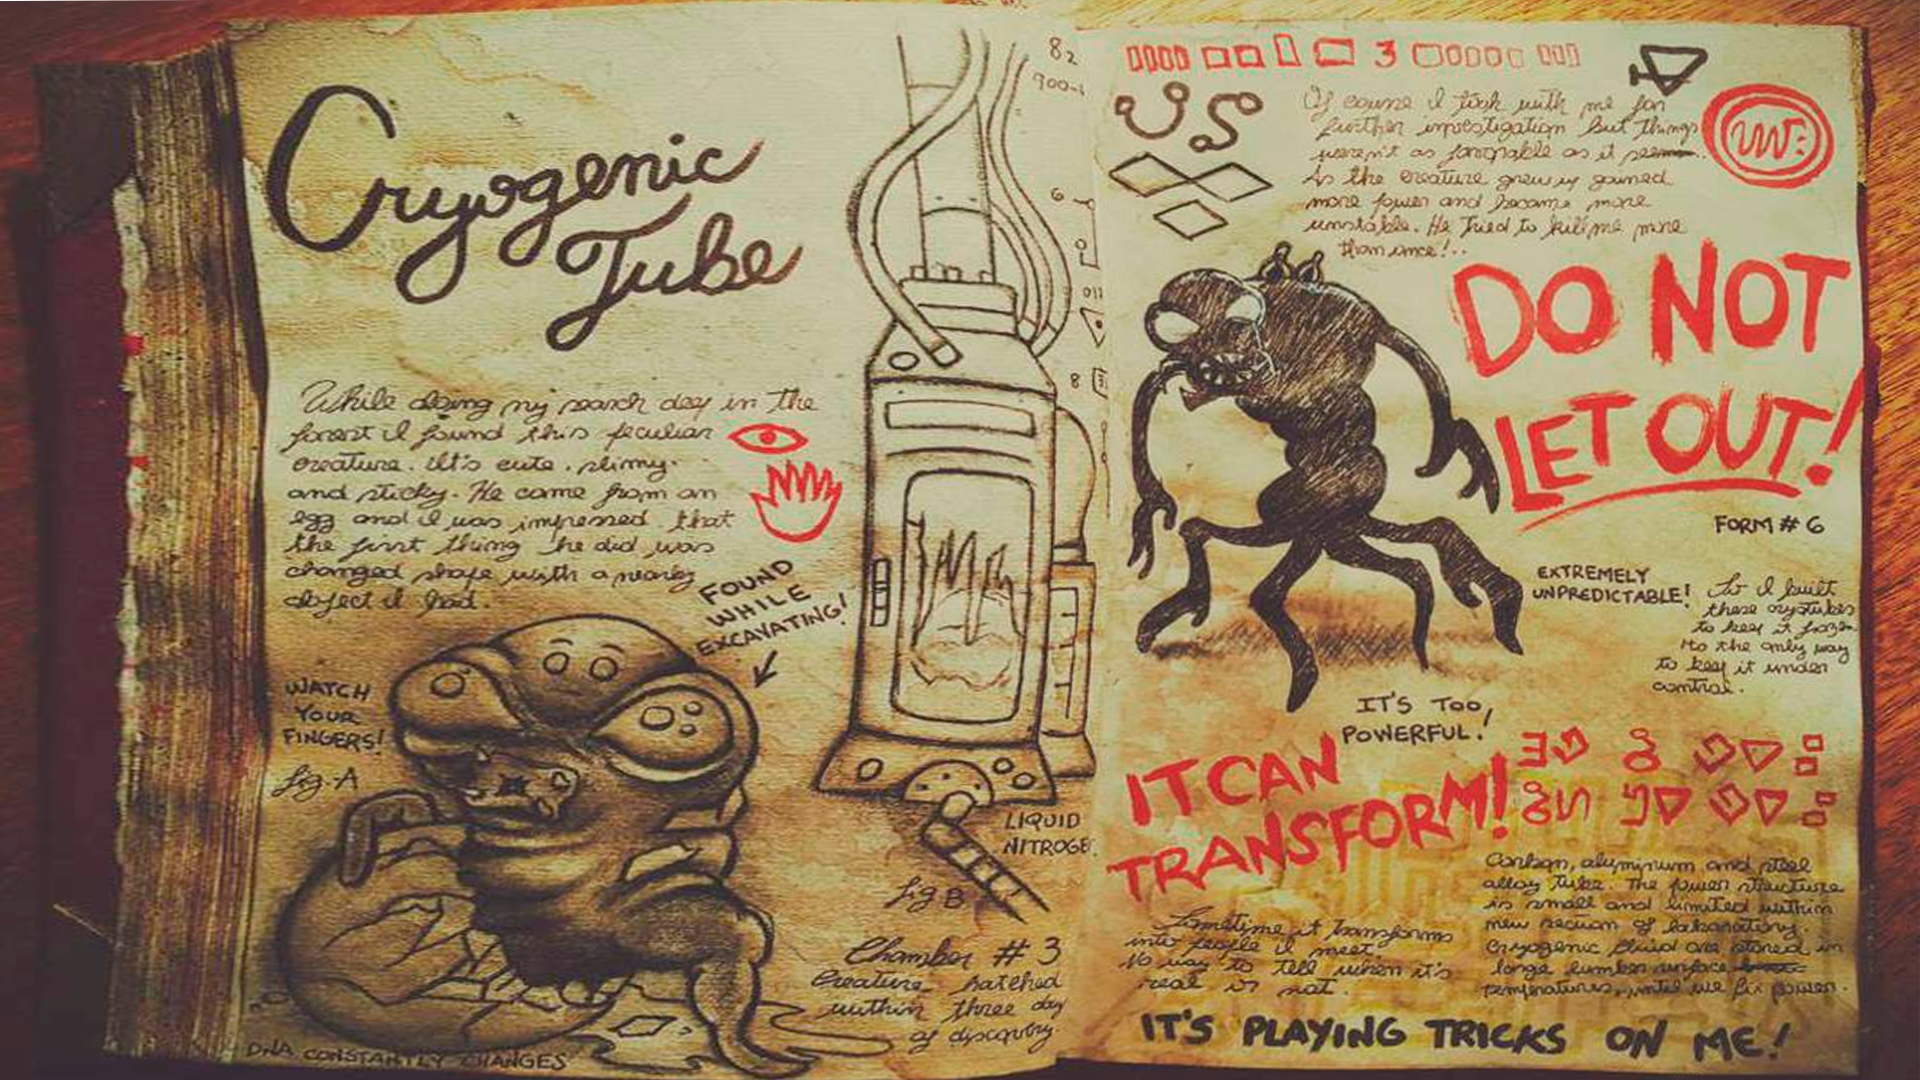 Cryogenic
Tube
While doing my search day in the
forest I found this peculiar
creature. It's cute, slimy
and sticky. He came from an
egg and I was impressed that
the first thing he did was
changed shape with a nearby
object I had.
FOUND
WHILE
EXCAVATING!
WATCH
YOUR
FINGERS!
fig-A
DNA CONSTANTLY CHANGES
82
900-
6
011
8
LIQUID
NITROGE
fig B
Chamber # 3
Creature hatched
within three day
of discovery
3
Of course I took with me for
further investigation but things
weren't as favorable as it seem
As the creature grew it gained
more power and became more
unstable. He tried to kill me more
than once!..
DO NOT
LET OUT!
FORM # 6
EXTREMELY
UNPREDICTABLE!
So I built
these cryotubes
to keep it frozen
Its the only way
to keep it under
control.
IT'S TOO
POWERFUL!
IT CAN
TRANSFORM!
Sometime it transforms
into people I meet
No way to tell when it's
real or not.
Carbon, aluminum and steel
alloy tube. The power structure
is small and limited within
new section of laboratory.
Cryogenic fluid are stored in
large surface
temperatures, until we fix power.
IT'S PLAYING TRICKS ON ME!